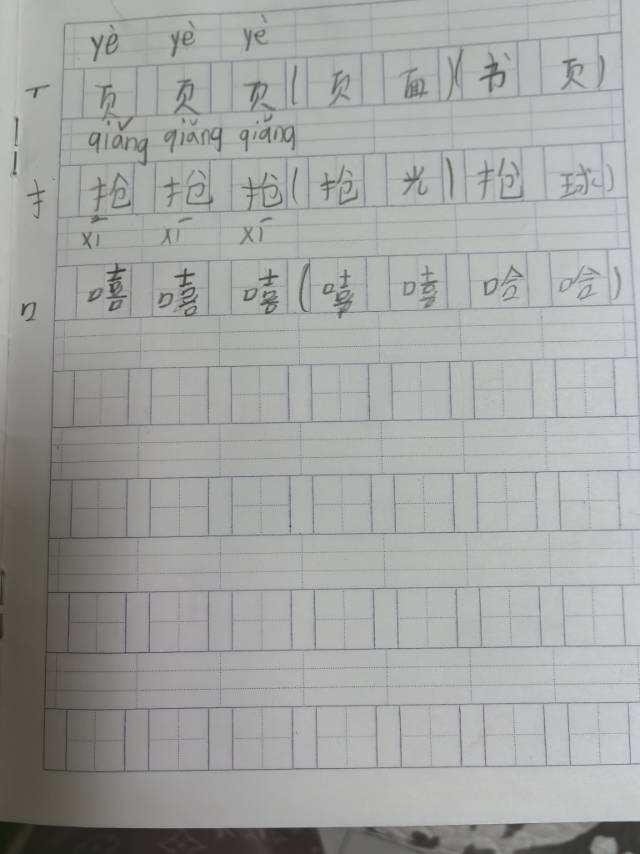 yè yè yè
丆 页 页 页 ( 页 面 ) ( 书 页 )
qiǎng qiǎng qiǎng
扌 抢 抢 抢 ( 抢 光 ) 抢 球 )
xī xī xī
口 嘻 嘻 嘻 ( 嘻 嘻 哈 哈 )